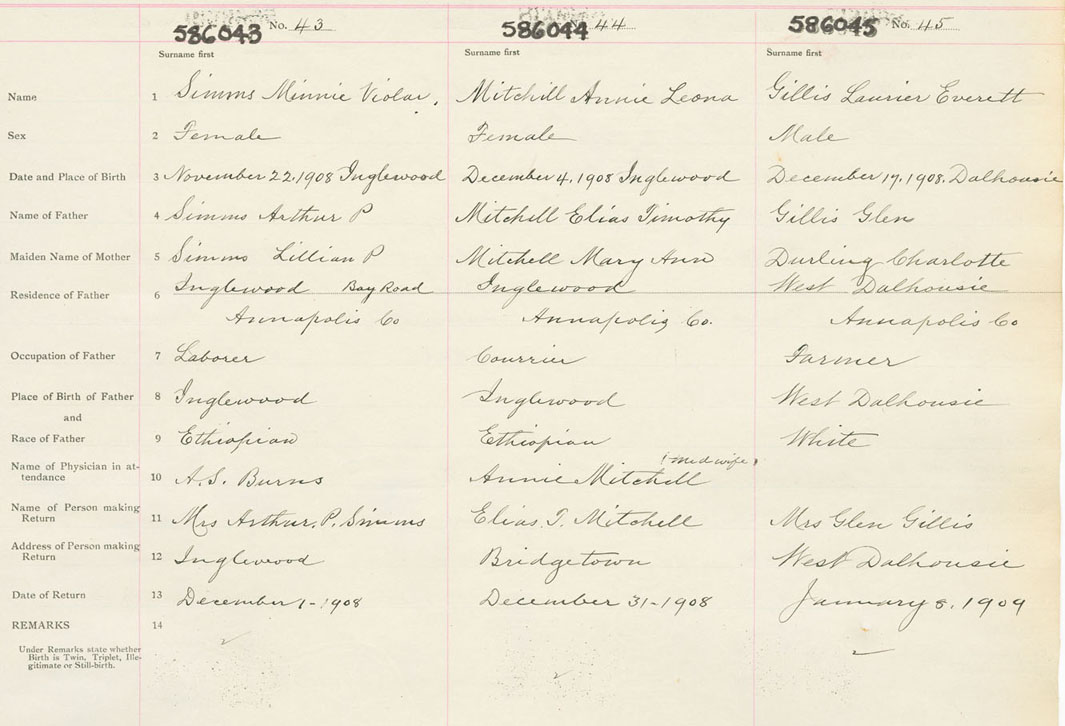 586043 No. 43 586044 44 586045 No. 45
Surname first Surname first Surname first
Name 1 Simms Minnie Violar, Mitchill Annie Leona Gillis Laurier Everett
Sex 2 Female Female Male
Date and Place of Birth 3 November 22, 1908 Inglewood December 4, 1908 Inglewood December 17, 1908, Dalhousie
Name of Father 4 Simms Arthur P Mitchell Elias Timothy Gillis Glen
Maiden Name of Mother 5 Simms Lillian P Mitchell Mary Ann Durling Charlotte
Residence of Father 6 Inglewood Bay Road Inglewood West Dalhousie
Annapolis Co Annapolis Co. Annapolis Co
Occupation of Father 7 Laborer Courrier Farmer
Place of Birth of Father 8 Inglewood Inglewood West Dalhousie
and
Race of Father 9 Ethiopian Ethiopian White
(Midwife)
Name of Physician in at-
tendance 10 A. S. Burns Annie Mitchell
Name of Person making
Return 11 Mrs Arthur. P. Simms Elias. T. Mitchell Mrs Glen Gillis
Address of Person making
Return 12 Inglewood Bridgetown West Dalhousie
Date of Return 13 December 1-1908 December 31-1908 January 8. 1909
REMARKS 14
Under Remarks state whether
Birth is Twin, Triplet, Ille-
gitimate or Still-birth.